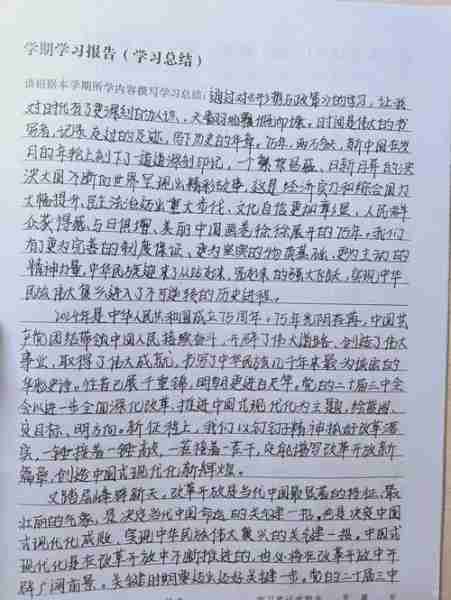 学期学习报告（学习总结）
请根据本学期所学内容撰写学习总结：通过对《形势与政策》的学习，让我
对时代有了更深刻的认识。时间是伟大的书
写者，记录走过的足迹，留下历史的年轮。75年，两万余天，新中国在岁
月的年轮上刻下了一道道深刻印记，一个繁荣昌盛、日新月异的泱
泱大国不断向世界呈现出精彩故事。这是经济实力和综合国力
大幅提升、民主法治迈出重大步伐、文化自信更加彰显、人民群
众获得感与日俱增、美丽中国画卷徐徐展开的75年。我们
有了更为完善的制度保证、更为坚实的物质基础、更为主动的
精神力量，中华民族迎来了从站起来、富起来的强大飞跃，实现中华
民族伟大复兴进入了不可逆转的历史进程。
2024年是中华人民共和国成立75周年。75年光阴荏苒，中国共
产党团结带领中国人民接续奋斗，开辟了伟大道路，创造了伟大
事业，取得了伟大成就，书写了中华民族几千年来最为恢宏的
华彩史诗。往者已展千重锦，明朝更进百尺竿。党的二十届三中全
会以进一步全面深化改革、推进中国式现代化为主题，绘蓝图、
定目标、明方向。新征程上，我们以钉钉子精神抓好改革落
实，一锤接着一锤敲，一茬接着一茬干，定能谱写改革开放新
篇章，创造中国式现代化新辉煌。
改革开放是当代中国最显著的特征、最
壮丽的气象，是决定当代中国命运的关键一招，也是决定中国
式现代化成败、实现中华民族伟大复兴的关键一招。中国式
现代化是在改革开放中不断推进的，也必将在改革开放中开
辟广阔前景。关键时期要迈出好关键一步。党的二十届三中